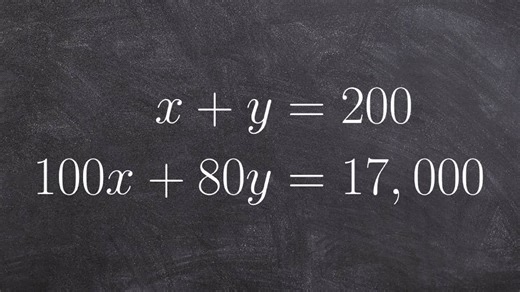 x + y = 200
100x + 80y = 17,000